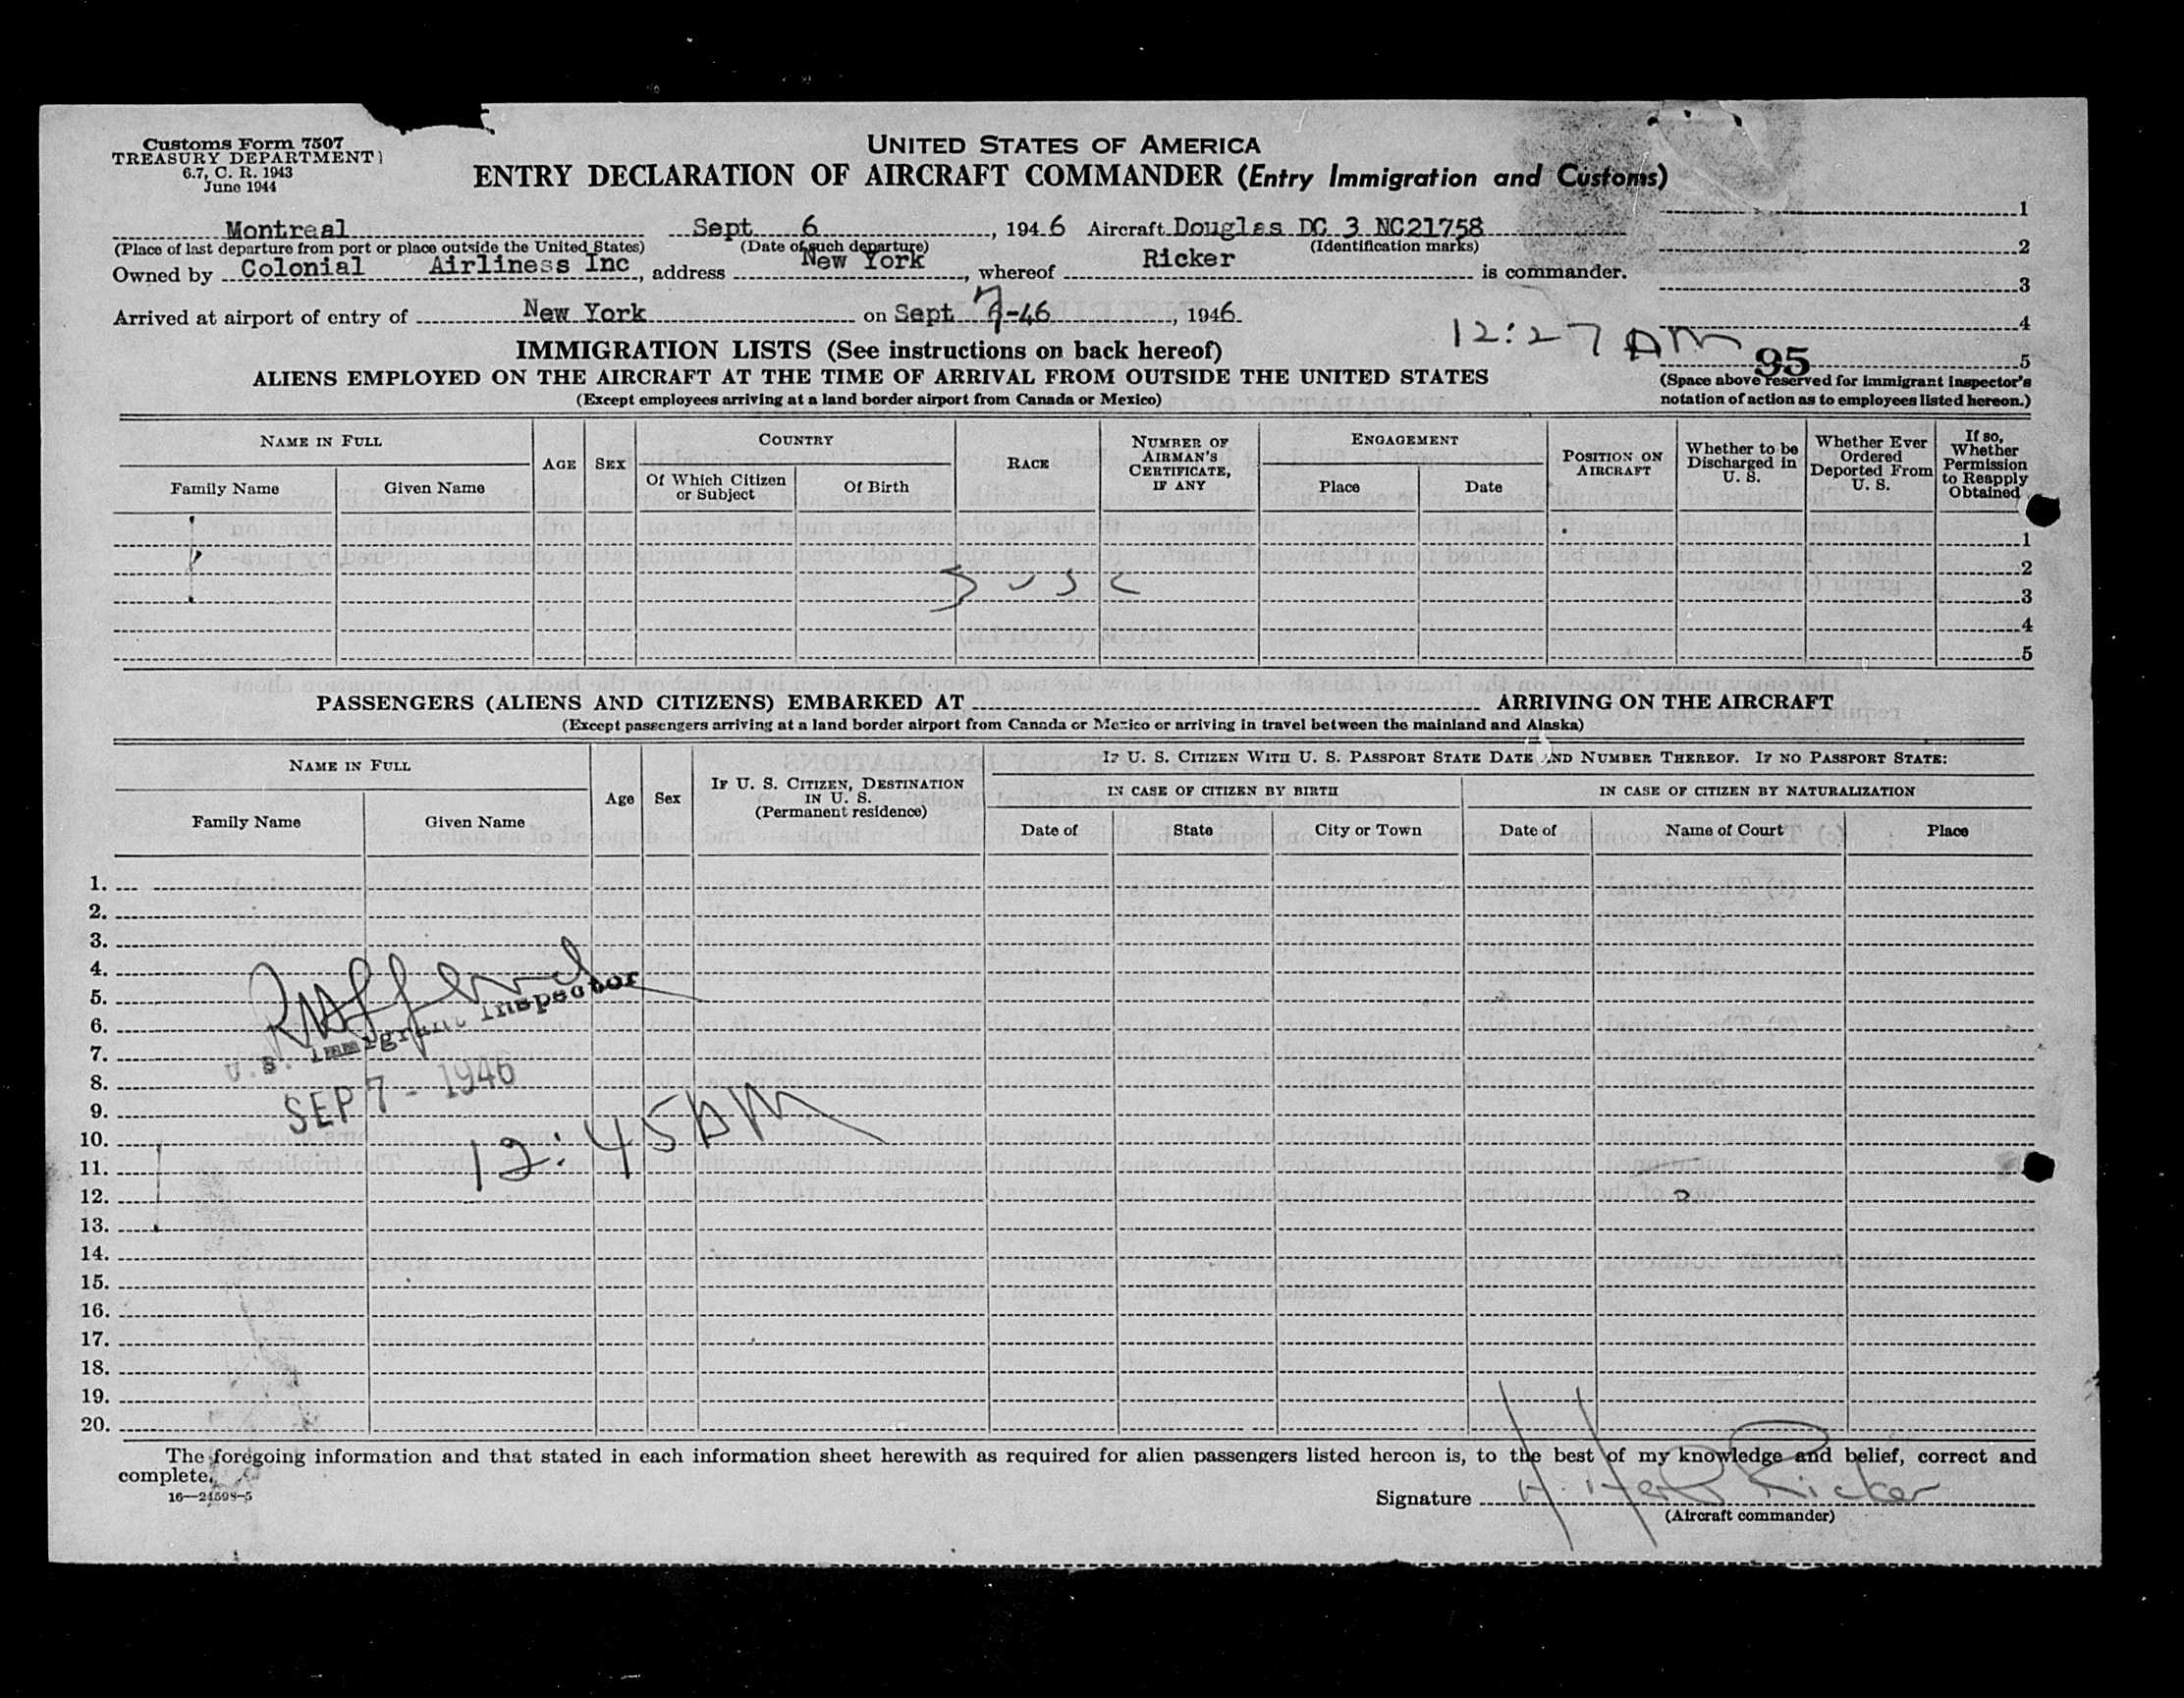 Customs Form 7507
TREASURY DEPARTMENT
6.7, C. R. 1943
June 1944
UNITED STATES OF AMERICA
ENTRY DECLARATION OF AIRCRAFT COMMANDER (Entry Immigration and Customs)
Montreal Sept 6, 1946 Aircraft Douglas DC 3 NC21758
(Place of last departure from port or place outside the United States) (Date of such departure) (Identification marks)
Owned by Colonial Airliness Inc, address New York, whereof Ricker is commander.
Arrived at airport of entry of New York on Sept 7-46, 1946.
1
2
3
4
5
12:27 AM
95
(Space above reserved for immigrant inspector's
notation of action as to employees listed hereon.)
IMMIGRATION LISTS (See instructions on back hereof)
ALIENS EMPLOYED ON THE AIRCRAFT AT THE TIME OF ARRIVAL FROM OUTSIDE THE UNITED STATES
(Except employees arriving at a land border airport from Canada or Mexico)
NAME IN FULL
Family Name
Given Name
AGE
SEX
COUNTRY
Of Which Citizen
or Subject
Of Birth
RACE
NUMBER OF
AIRMAN'S
CERTIFICATE,
IF ANY
ENGAGEMENT
Place
Date
POSITION ON
AIRCRAFT
Whether to be
Discharged in
U. S.
Whether Ever
Ordered
Deported From
U. S.
If so,
Whether
Permission
to Reapply
Obtained
1
2
3 U S C
3
4
5
PASSENGERS (ALIENS AND CITIZENS) EMBARKED AT ARRIVING ON THE AIRCRAFT
(Except passengers arriving at a land border airport from Canada or Mexico or arriving in travel between the mainland and Alaska)
NAME IN FULL
Family Name
Given Name
Age
Sex
IF U. S. CITIZEN, DESTINATION
IN U. S.
(Permanent residence)
IF U. S. CITIZEN WITH U. S. PASSPORT STATE DATE AND NUMBER THEREOF. IF NO PASSPORT STATE:
IN CASE OF CITIZEN BY BIRTH
Date of
State
City or Town
IN CASE OF CITIZEN BY NATURALIZATION
Date of
Name of Court
Place
1.
2.
3.
4.
5.
6.
7.
8.
9.
10.
11.
12.
13.
14.
15.
16.
17.
18.
19.
20.
U.S. Immigrant Inspector
SEP 7 - 1946
12:45AM
The foregoing information and that stated in each information sheet herewith as required for alien passengers listed hereon is, to the best of my knowledge and belief, correct and
complete.
16—24598-5
Signature H. Ricker
(Aircraft commander)